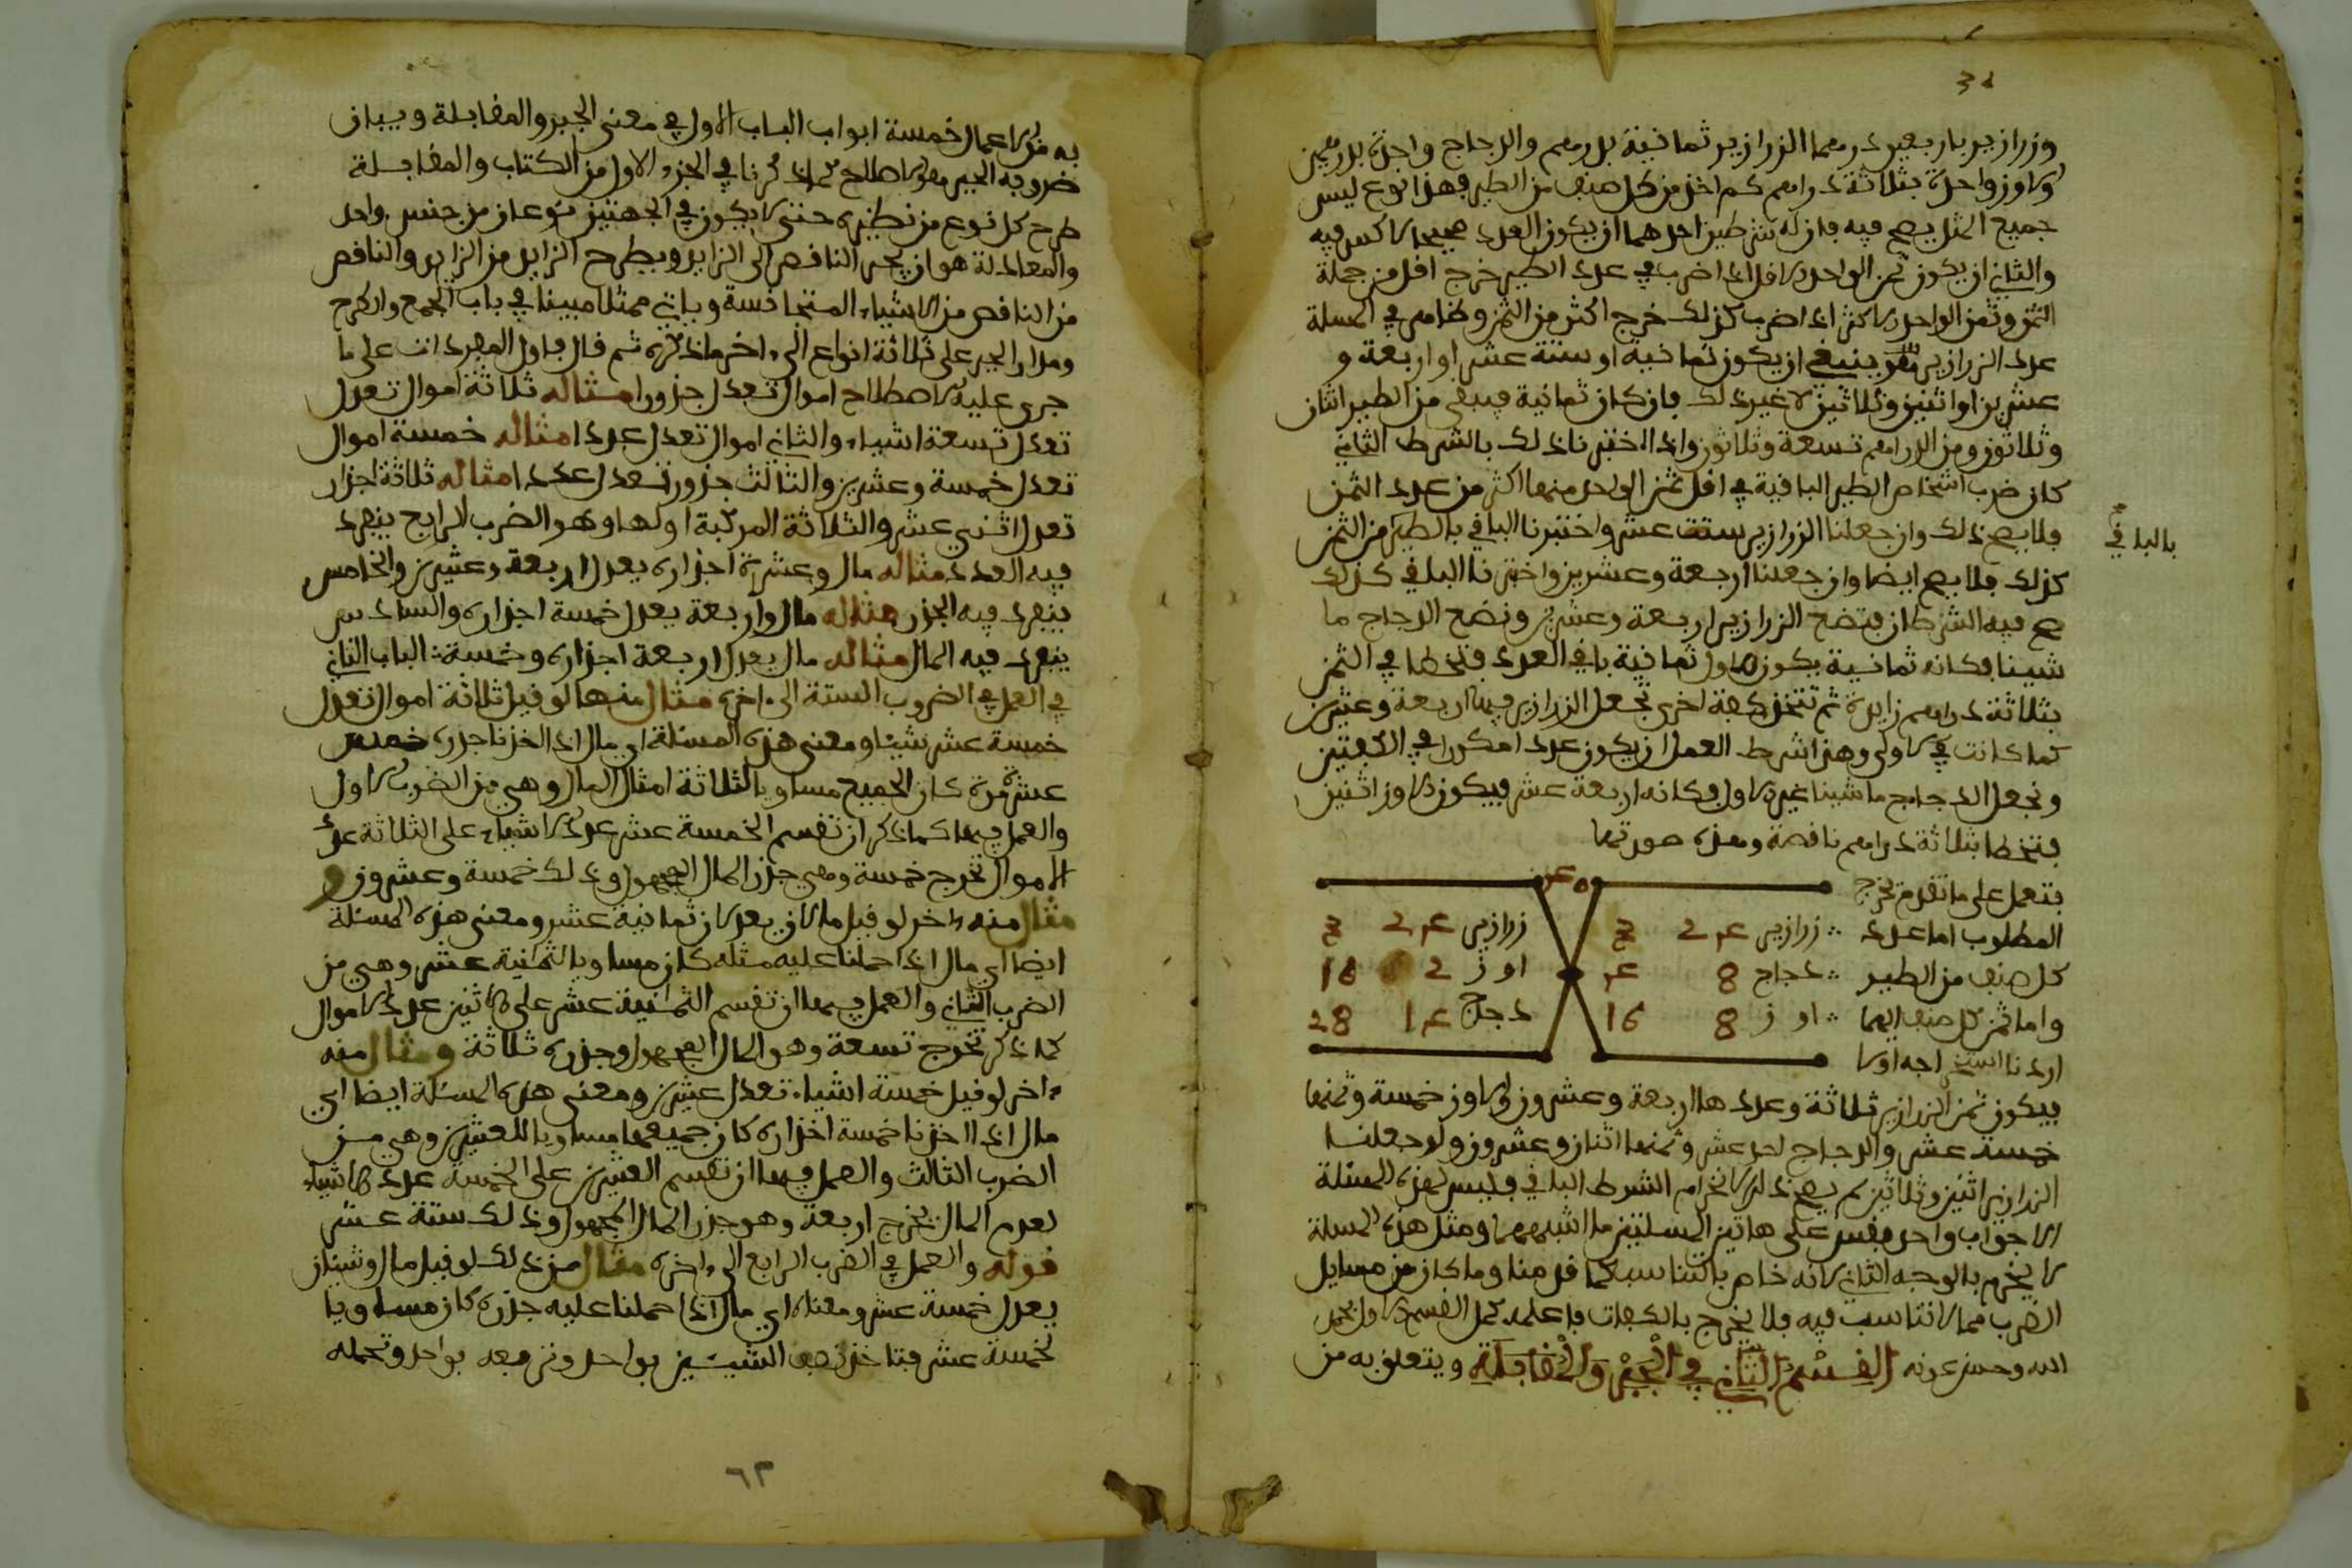 وزرازير باربعين درهما الزرازير ثمانية بدرهم والدجاج واحدة بدرهمين
والاوز واحدة بثلاثة دراهم كم اخذ من كل صنف من الطير فهذا نوع ليس
جميع المثل يصح فيه فان له شرطين احدهما ان يكون العدد صحيحا لا كسر فيه
والثاني ان يكون ثمن الواحد الاقل اذا ضرب في عدد الطير خرج اقل من جملة
الثمن وثمن الواحد الاكثر اذا ضرب كذلك خرج اكثر من الثمن وظاهر في المسلة
عدد الزرازير ينبغي ان يكون ثمانية او ستة عشر او اربعة و
عشرين او اثنين وثلاثين لا غير ذلك فان كان ثمانية فيبقى من الطير اثنان
وثلاثون ومن الدراهم تسعة وثلاثون واذا اختبرنا ذلك بالشرط الثاني
كان ضرب اشخاص الطير الباقية في اقل ثمن الواحد منها اكثر من عدد الثمن
فلا يصح ذلك وان جعلنا الزرازير ستة عشر واختبرنا الباقي بالطير من الثمن
بالباقي
كذلك فلا يصح ايضا وان جعلنا اربعة وعشرين واختبرنا الباقي كذلك
صح فيه الشرطان فتضع الزرازير اربعة وعشرين ونضع الدجاج ما
شينا فكانه ثمانية يكون الاول ثمانية باقي العدد فتخطا في الثمن
بثلاثة دراهم زايدة ثم تتخذ كفة اخرى تجعل الزرازير فيها اربعة وعشرين
كما كانت في الاولى وهذا شرط العمل ان يكون عددا مكررا في الكفتين
ونجعل الدجاج ما شينا غير الاول فكانه اربعة عشر فيكون الاوز اثنين
فتخطا بثلاثة دراهم ناقصة وهذه صورتها
فتعمل على ما تقدم تخرج
المطلوب اما عدد ∴ زرازير 24 3 زرازير 24 3
كل صنف من الطير ∴ دجاج 8 4 اوز 2 16
واما ثمن كل صنف ايهما ∴ اوز 8 16 دجاج 14 28
اردنا اولا
فيكون ثمن الزرازير ثلاثة وعددها اربعة وعشرون والاوز خمسة وثمنها
خمسة عشر والدجاج احد عشر وثمنها اثنان وعشرون ولو جعلنا
الزرازير اثنين وثلاثين لم يصح ذلك لانخرام الشرط الباقي فليس لهذه المسئلة
الا جواب واحد فقس على هاتين المسلتين ما اشبههما ومثل هذه المسلة
لا يخرج بالوجه الثاني لانه خاص بالتناسب كما قدمنا وما كان من مسايل
الضرب مما لا تناسب فيه فلا يخرج بالكفات فاعلمه كمل القسم الاول بحمد
الله وحسن عونه القسم الثاني في الجبر والمقابلة ويتعلق به من
به من الاعمال خمسة ابواب الباب الاول في معنى الجبر والمقابلة وبيان
ضروبه الجبر هو الاصلاح كما ذكرنا في الجزء الاول من الكتاب والمقابلة
طرح كل نوع من نظيره حتى لا يكون في الجهتين نوعان من جنس واحد
والمعادلة هو ان يجبر الناقص الى الزايد ويطرح الزايد من الزايد والناقص
من الناقص من الاشياء المتجانسة وياتي ممثلا مبينا في باب الجمع والطرح
ومدار الجبر على ثلاثة انواع الى اخر ما ذكره ثم قال فاول المفردات على ما
جرى عليه الاصطلاح اموال تعدل جذورا مثاله ثلاثة اموال تعدل
تعدل تسعة اشياء والثاني اموال تعدل عددا مثاله خمسة اموال
تعدل خمسة وعشرين والثالث جذور تعدل عددا مثاله ثلاثة اجذار
تعدل اثني عشر والثلاثة المركبة اولها وهو الضرب الرابع ينفرد
فيه العدد مثاله مال وعشرة اجذاره يعدل اربعة وعشرين والخامس
ينفرد فيه الجذر مثاله مال واربعة يعدل خمسة اجذاره والسادس
ينفرد فيه المال مثاله مال يعدل اربعة اجذاره وخمسة ∴ الباب الثاني
في العمل في الضروب الستة الى اخره مثال منها لو قيل ثلاثة اموال تعدل
خمسة عشر شيئا ومعنى هذه المسئلة اي مال اذا اخذنا جذره خمس
عشرة مرة كان الجميع مساويا لثلاثة امثال المال وهي من الضرب الاول
والعمل فيها كما ذكر ان تقسم الخمسة عشر عدد الاشياء على الثلاثة عدد
الاموال تخرج خمسة وهي جذر المال المجهول وذلك خمسة وعشرون و
مثال منه اخر لو قيل مالان يعدلان ثمانية عشر ومعنى هذه المسئلة
ايضا اي مال اذا حملنا عليه مثله كان مساويا لثمانية عشر وهي من
الضرب الثاني والعمل فيها ان تقسم الثمانية عشر على الاثنين عدد الاموال
كما ذكر تخرج تسعة وهو المال المجهول وجذره ثلاثة ومثال منه
اخر لو قيل خمسة اشياء تعدل عشرين ومعنى هذه المسئلة ايضا اي
مال اذا اخذنا خمسة اجذاره كان جميعها مساويا للعشرين وهي من
الضرب الثالث والعمل فيها ان تقسم العشرين على الخمسة عدد الاشياء
لعدم المال يخرج اربعة وهو جذر المال المجهول وذلك ستة عشر
قوله والعمل في الضرب الرابع الى اخره مثال من ذلك لو قيل مال وشيئان
يعدل خمسة عشر ومعناه اي مال اذا حملنا عليه جذره كان مساويا
لخمسة عشر فتاخذ نصف الشيئين بواحد وتربعه بواحد وتحمله
٦٢